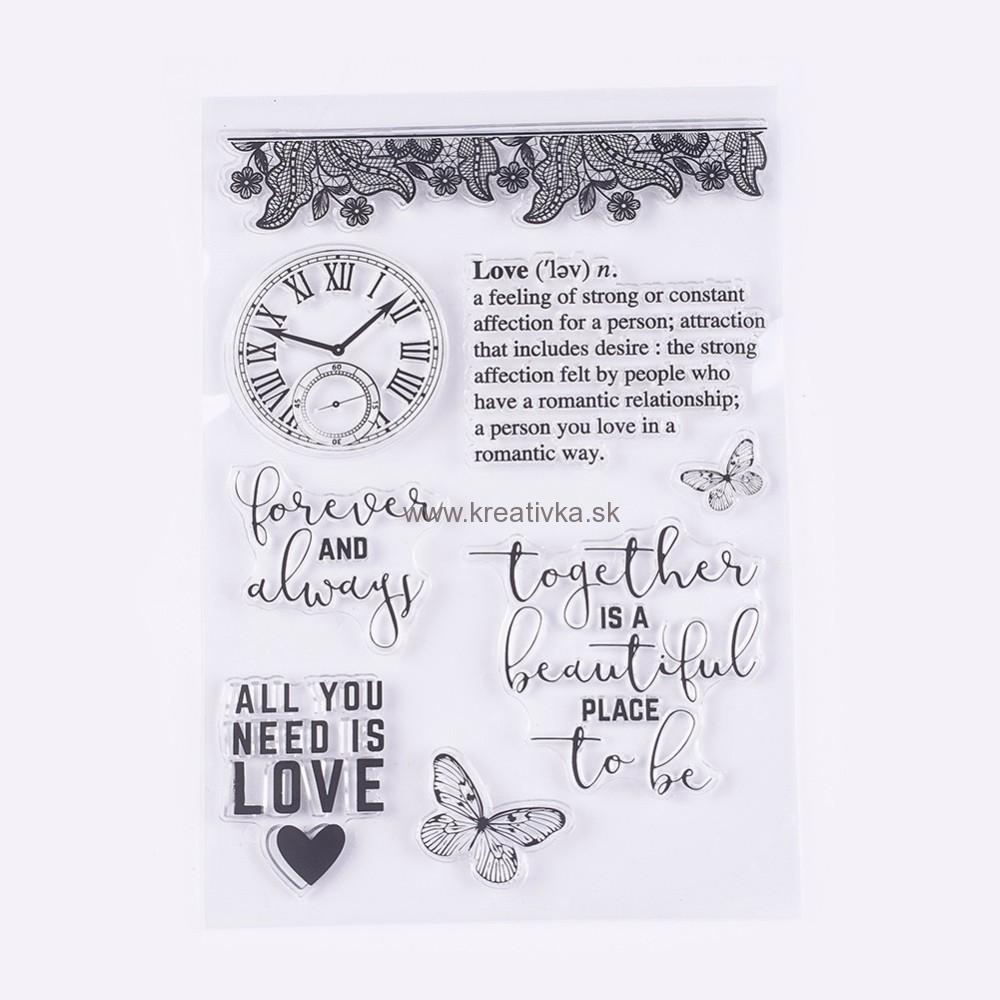 XII
I
II
III
IIII
VIII
IX
X
XI
60
15
30
45
Love ('ləv) n.
a feeling of strong or constant
affection for a person; attraction
that includes desire : the strong
affection felt by people who
have a romantic relationship;
a person you love in a
romantic way.
forever
AND
always
www.kreativka.sk
together
IS A
beautiful
PLACE
to be
ALL YOU
NEED IS
LOVE